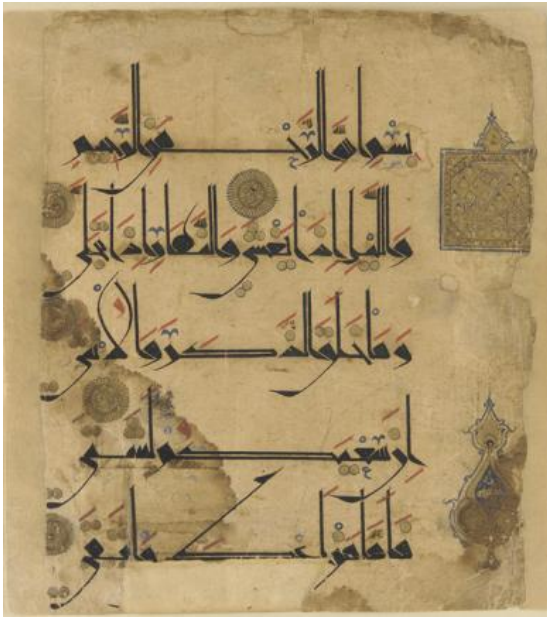 بِسْمِ اللَّهِ الرَّحْمَٰنِ الرَّحِيمِ
وَاللَّيْلِ إِذَا يَغْشَىٰ وَالنَّهَارِ إِذَا تَجَلَّىٰ
وَمَا خَلَقَ الذَّكَرَ وَالْأُنْثَىٰ
إِنَّ سَعْيَكُمْ لَشَتَّىٰ
فَأَمَّا مَنْ أَعْطَىٰ وَاتَّقَىٰ